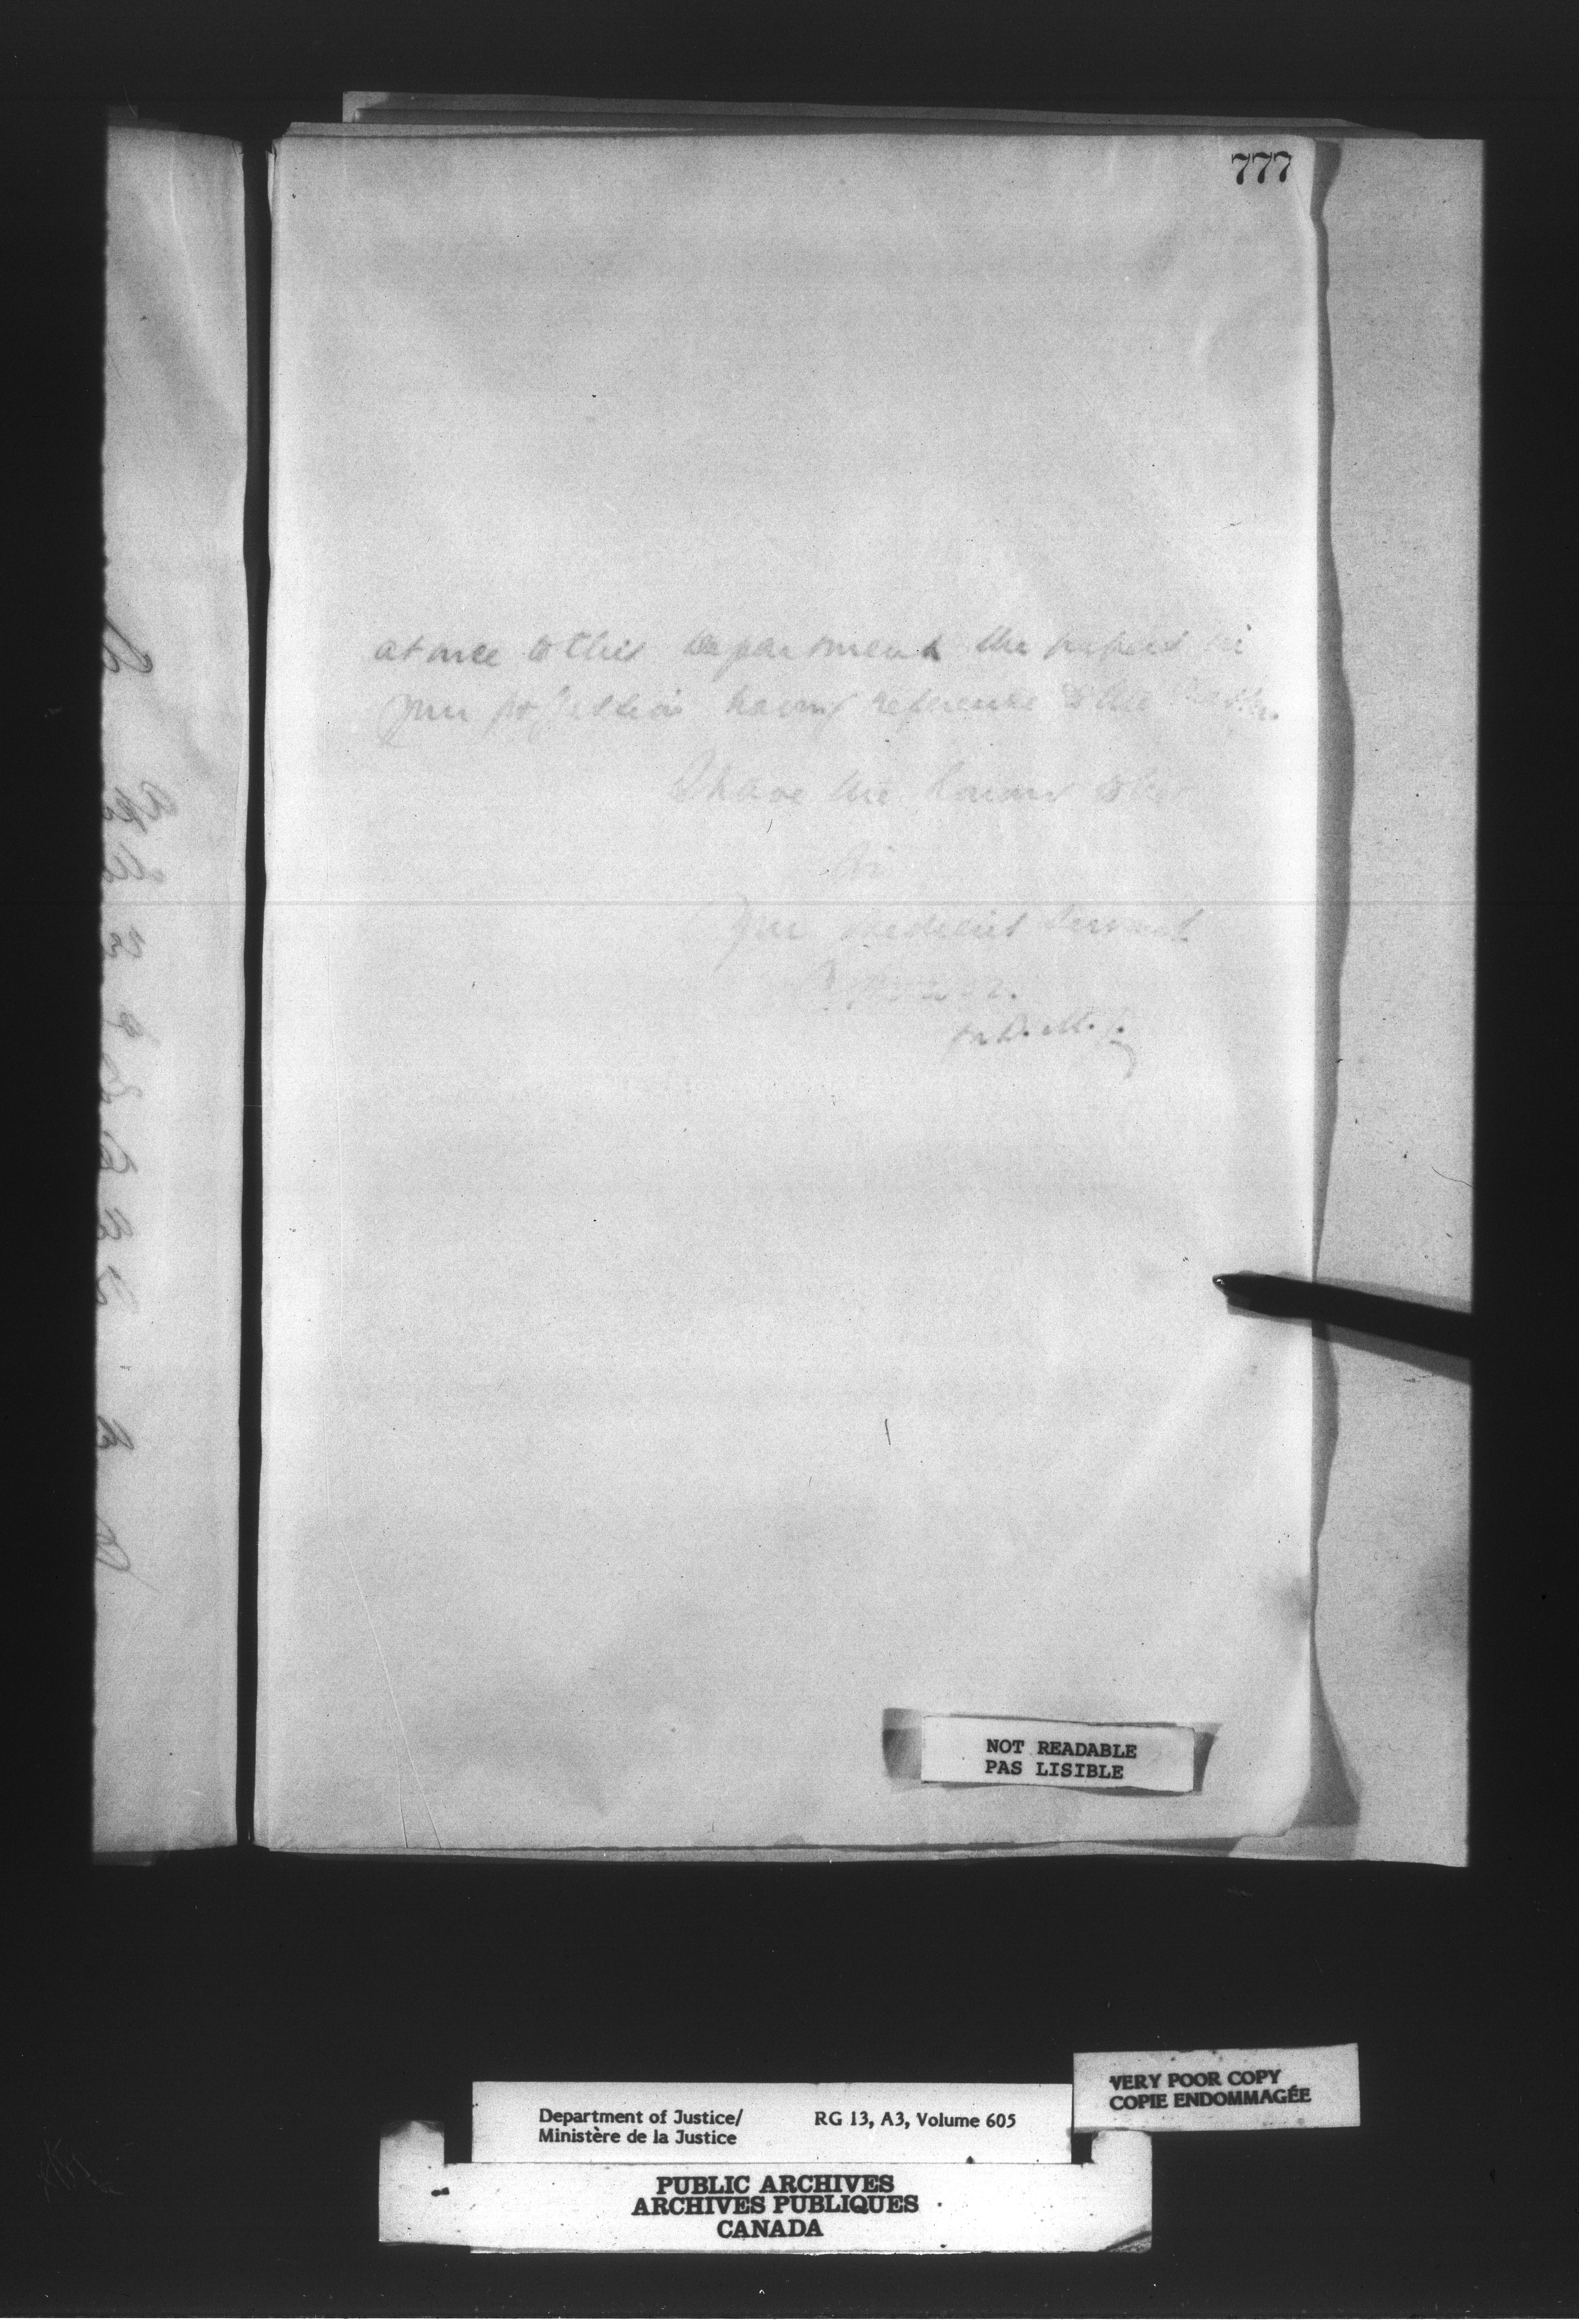 777
at once to this Department the papers in
your possession having reference to the matter.
I have the honour to be
Sir
Your obedient servant
for D. M. J.
NOT READABLE
PAS LISIBLE
VERY POOR COPY
COPIE ENDOMMAGÉE
Department of Justice/ RG 13, A3, Volume 605
Ministère de la Justice
PUBLIC ARCHIVES
ARCHIVES PUBLIQUES
CANADA